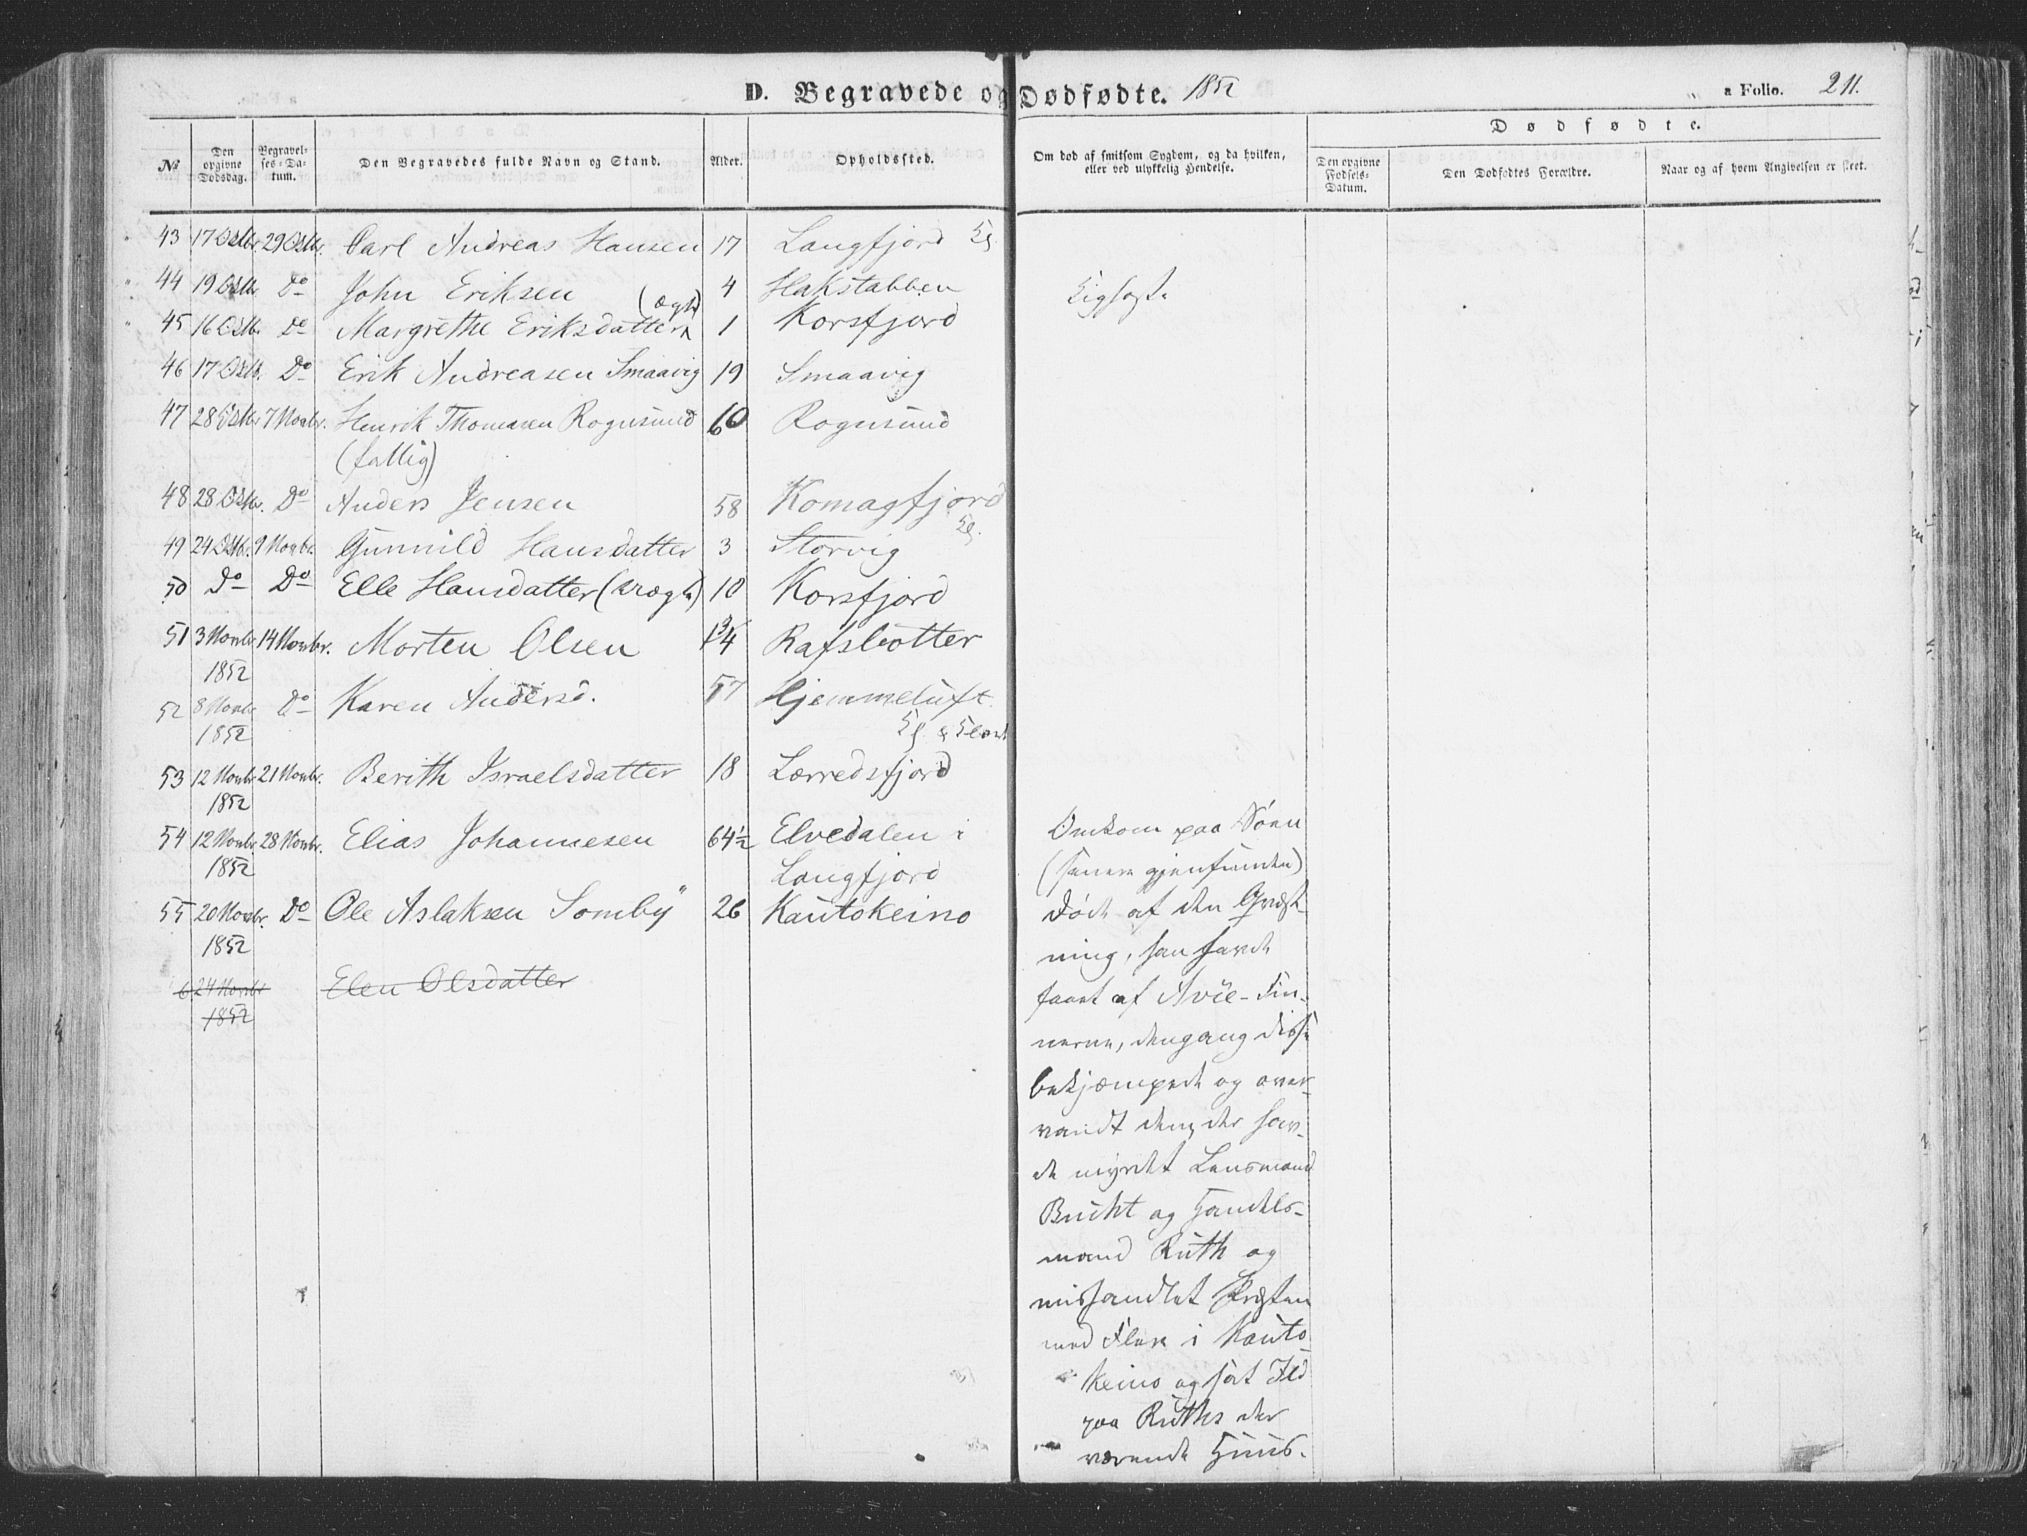 D. Begravede og Dødfødte. 1852
a Folio. 211.
Dødfødte.
No
Den opgivne Dødsdag.
Begravelses-Datum.
Den Begravedes fulde Navn og Stand.
Alder.
Opholdssted.
Om død af smitsom Sygdom, og da hvilken, eller ved ulykkelig Hendelse.
Den opgivne Fødsels-Datum.
Den Dødfødtes Forældre.
Naar og af hvem Angivelsen er skeet.
43 17 Octbr. 29 Octbr. Carl Andreas Hansen 17 Langfjord
44 19 Octb. Do John Eriksen 4 Hakstabben
45 16 Octb. Do Margrethe Eriksdatter (ægte) 1 Korsfjord
46 17 Octb. Do Erik Andreasen Smaavig 19 Smaavig
47 28 Octbr 7 Novbr. Henrik Thomasen Rognsund 60 Rognsund
(fattig)
48 28 Octbr. Do Anders Jensen 58 Komagfjord
49 24 Octb. 9 Novbr. Gunnild Hansdatter 3 Storvig
50 Do Do Elle Hansdatter (uægte) 10 Korsfjord
51 3 Novbr 14 Novbr. Morten Olsen 3/4 Rafsbotter
1852
52 8 Novbr Do Karen Andersd. 57 Hjemmeluft
1852
53 12 Novbr 21 Novbr. Berith Israelsdatter 18 Lærredsfjord
1852
54 12 Novbr. 28 Novbr. Elias Johannesen 64½ Elvedalen i
1852 Langfjord
Omkom paa Søen
(senere gjenfunden)
55 20 Novbr. Do Ole Aslaksen Somby 26 Kautokeino
1852
6 24 Novbr Elen Olsdatter
1852
Døde af den Qvæst-
ning, han havde
faaet af Avje-Fin-
nerne, dengang disse
bekjæmpede og over-
vandt dem, der hav-
de myrdet Lensmand
Bucht og Handels-
mand Ruth og
mishandlet Præsten
med Flere i Kauto-
keino og sat Ild
paa Ruths der
værende Huus.